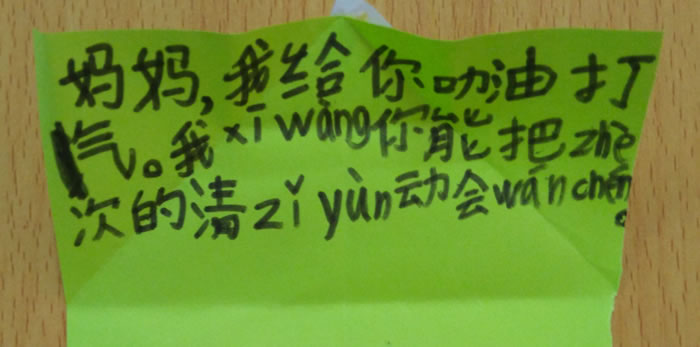 妈妈,我给你叻油打
气。我xī wàng你能把zhè
次的清zǐ yùn动会wán chén
。